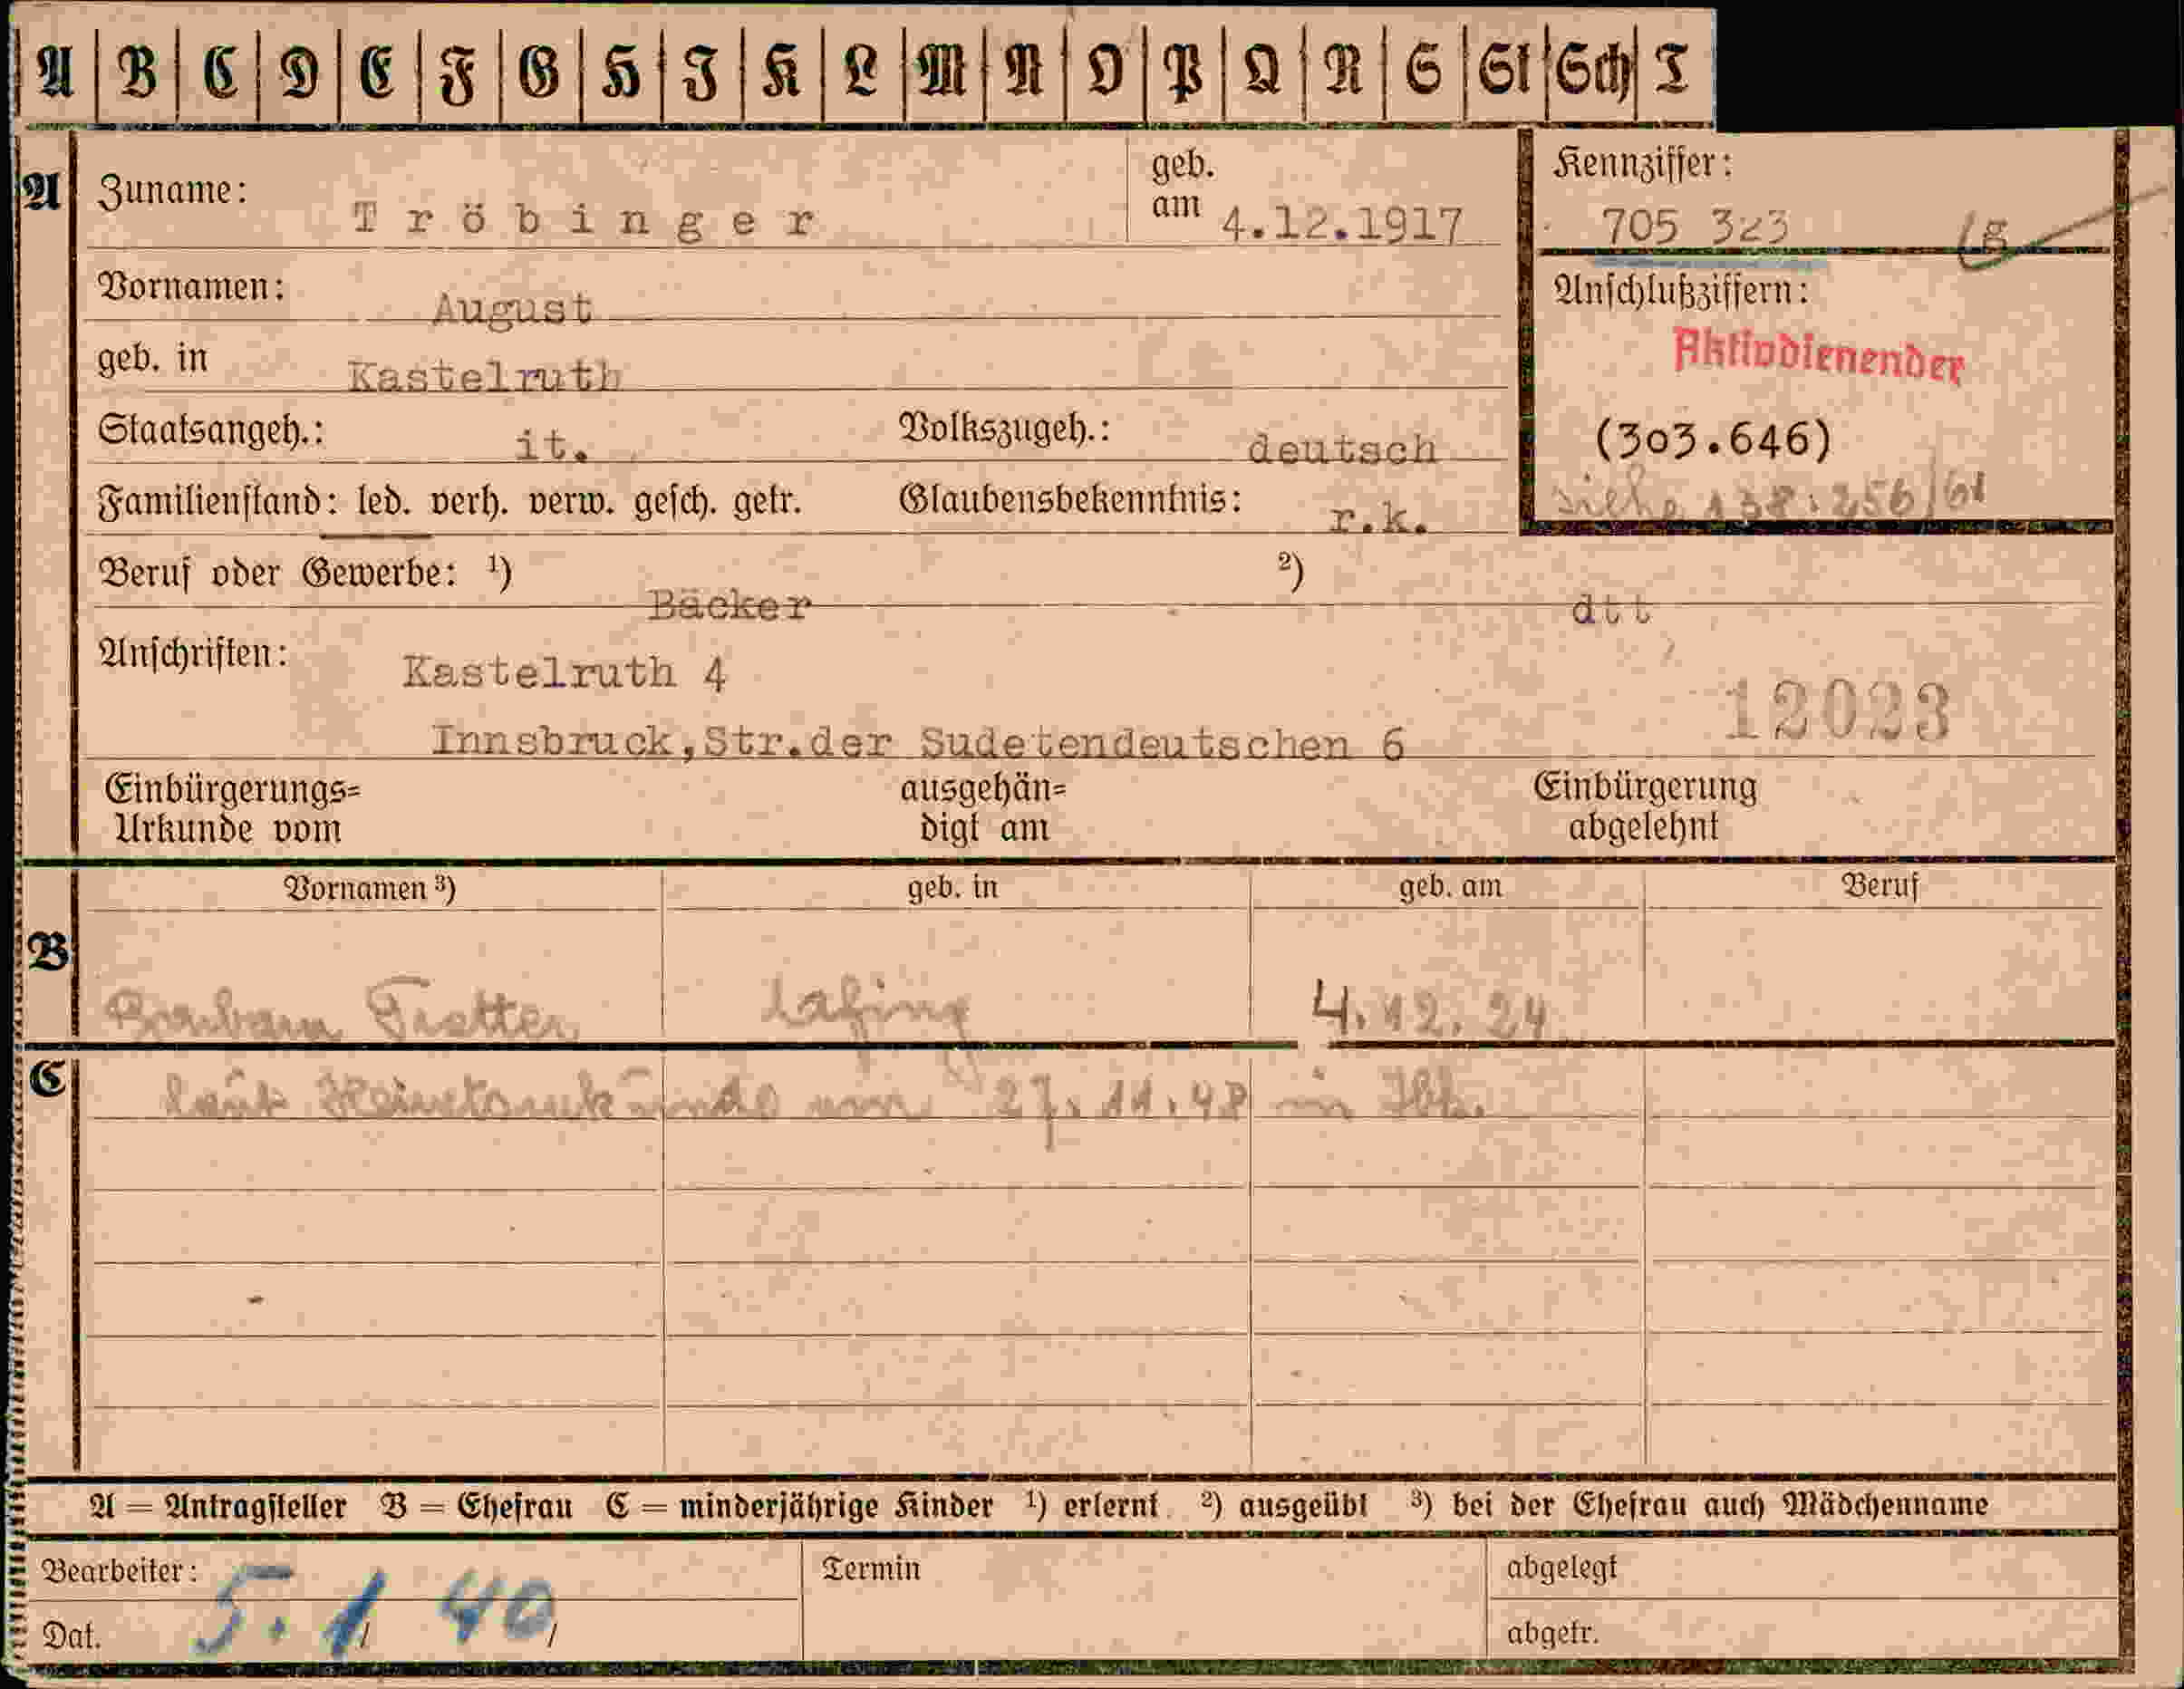 A B C D E F G H I K L M N O P Q R S St Sch T
A Zuname: Tröbinger geb. am 4.12.1917 Kennziffer: 705 323
Vornamen: August Anschlußziffern:
Aktivdienender
geb. in Kastelruth
Staatsangeh.: it. Volkszugeh.: deutsch (303.646)
Familienstand: led. verh. verw. gesch. getr. Glaubensbekenntnis: r.k. siehe 138.256/61
Beruf oder Gewerbe: 1) Bäcker 2) dtt
Anschriften: Kastelruth 4
12023
Innsbruck,Str.der Sudetendeutschen 6
Einbürgerungs= ausgehän= Einbürgerung
Urkunde vom digt am abgelehnt
Vornamen 3) geb. in geb. am Beruf
B Barbara Trotter 4.12.24
C laut vom 27.11.48 in Ibk.
A = Antragsteller B = Ehefrau C = minderjährige Kinder 1) erlernt 2) ausgeübt 3) bei der Ehefrau auch Mädchenname
Bearbeiter: Termin abgelegt
Dat. 5.1 40 abgetr.